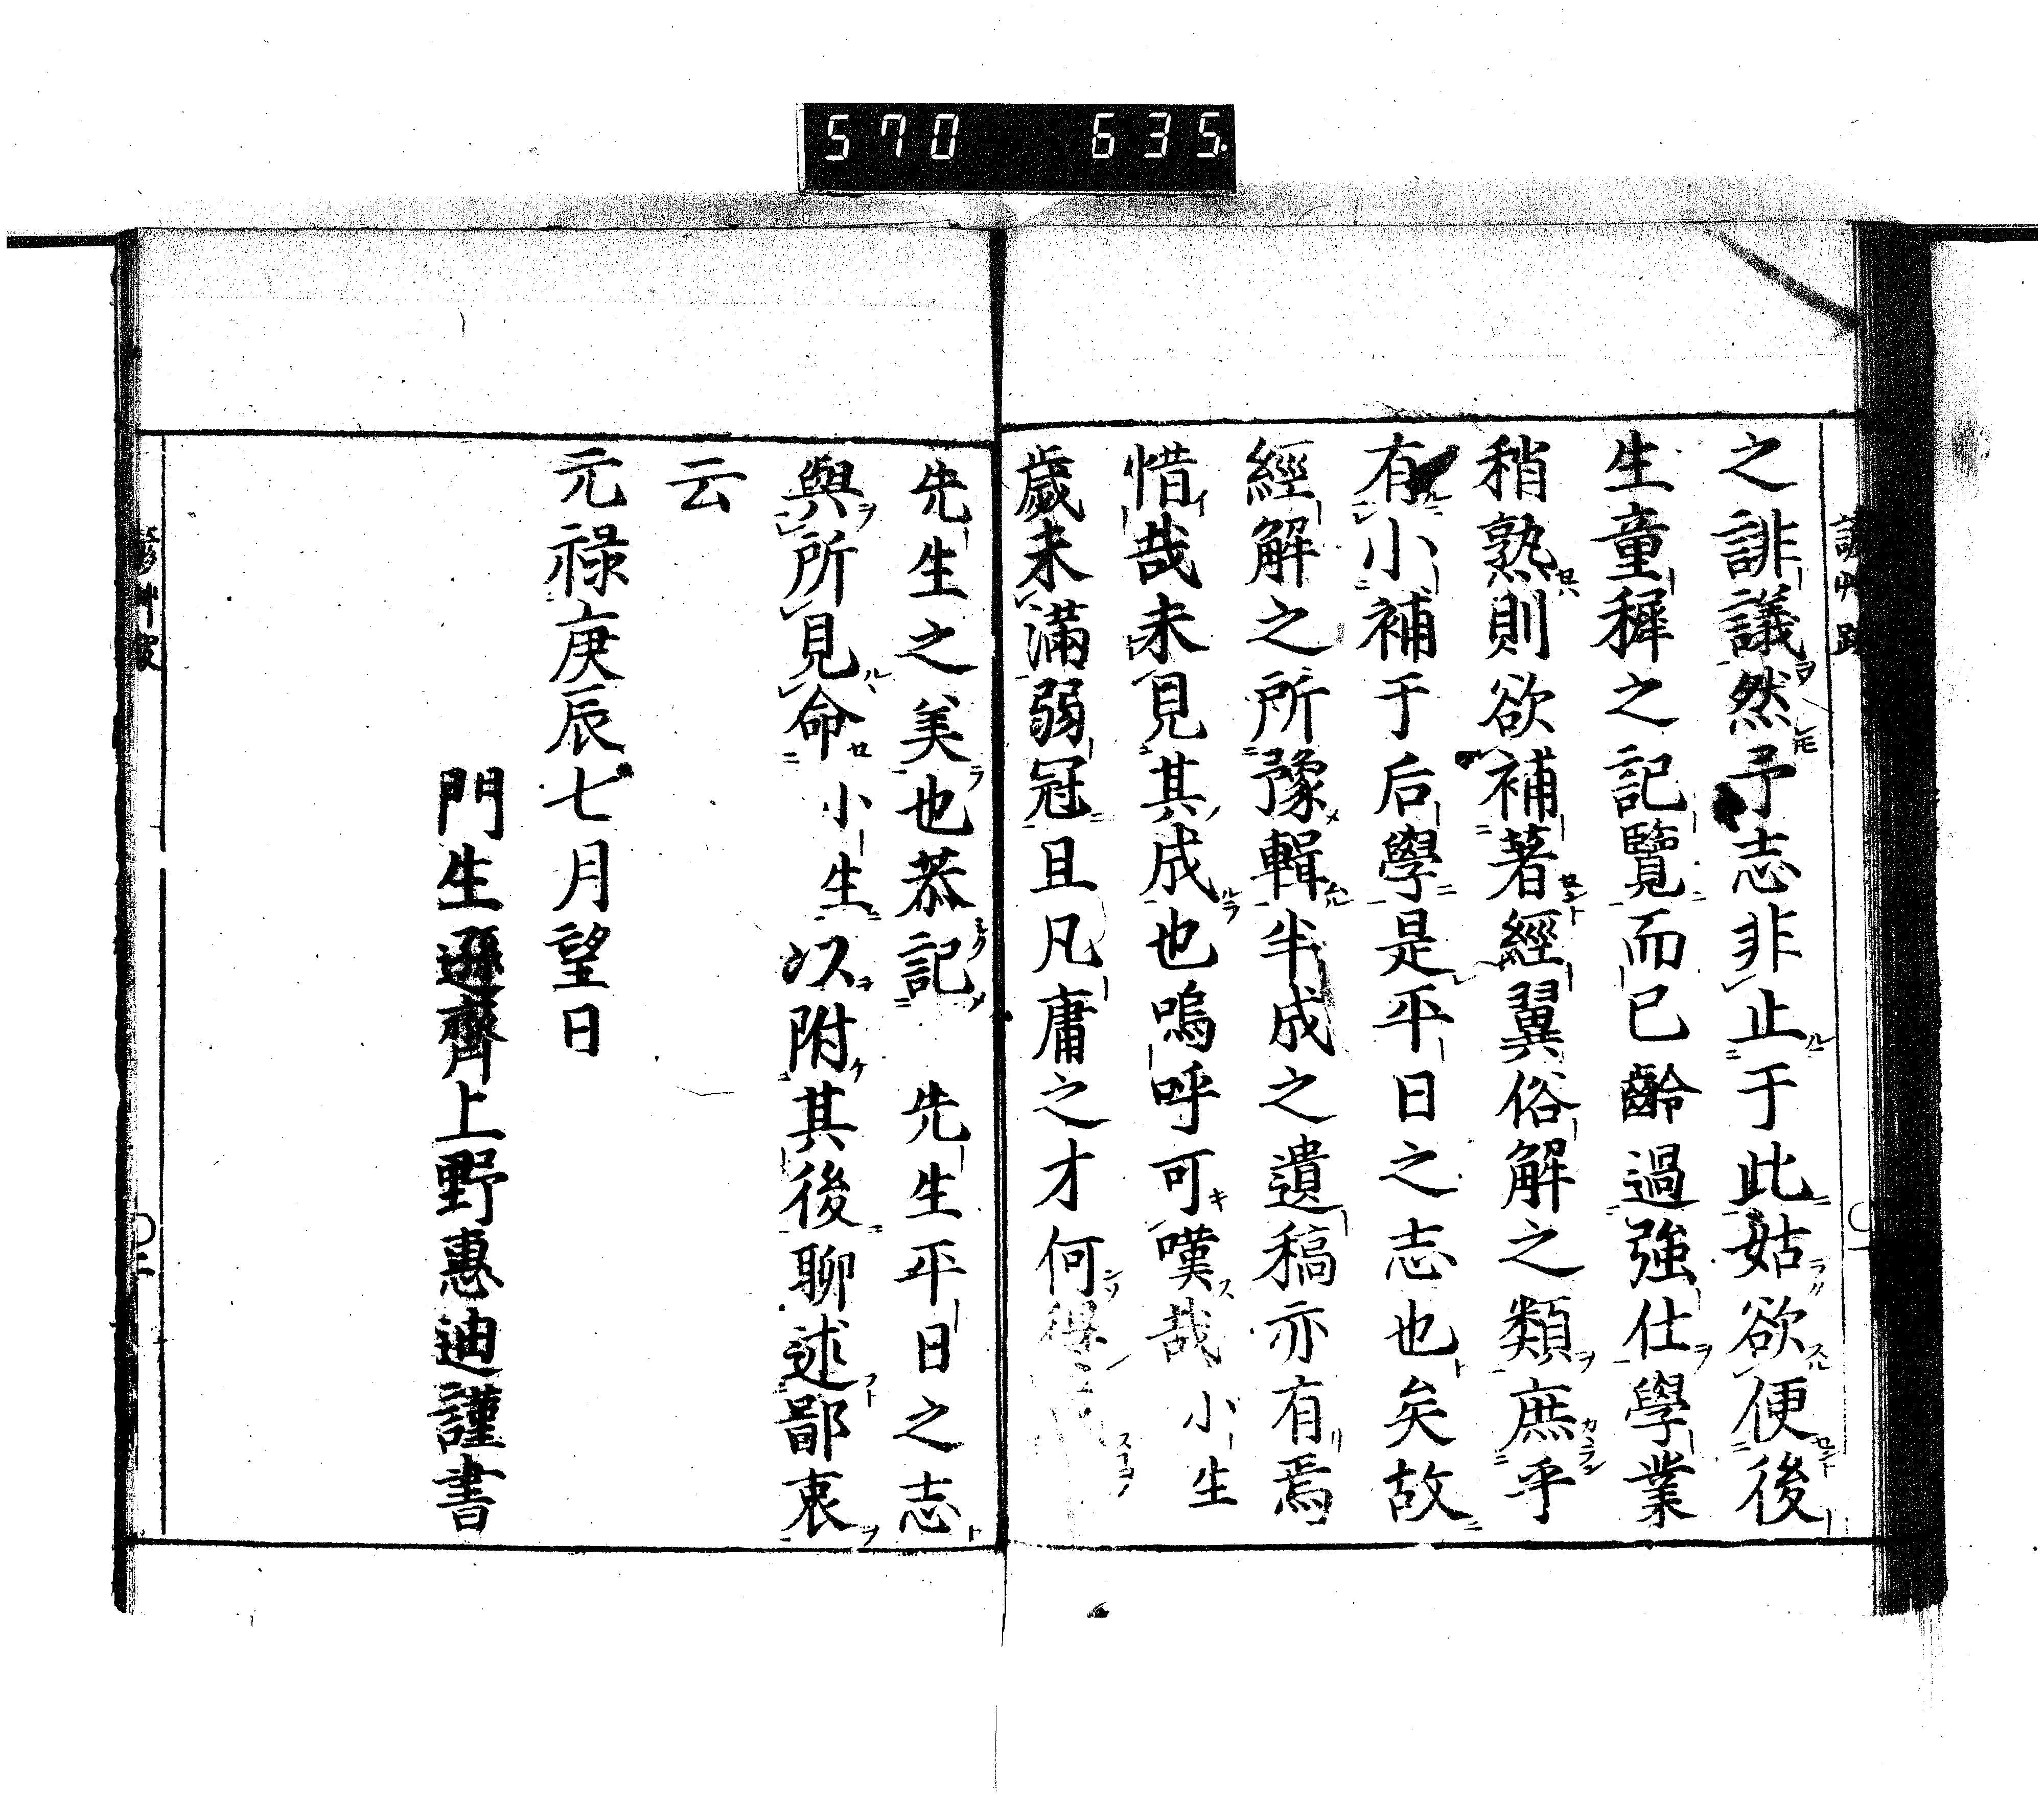 570 635
之誹議然予志非止于此姑欲便後
生童穉之記覽而已齡過強仕學業
稍熟則欲補著經翼俗解之類庶乎
有小補于后學是平日之志也矣故
經解之所豫輯半成之遺稿亦有焉
惜哉未見其成也嗚呼可嘆哉小生
歲未滿弱冠且凡庸之才何得
先生之美也恭記 先生平日之志
與所見命小生以附其後聊述鄙衷
云
元祿庚辰七月望日
門生遜齊上野惠迪謹書